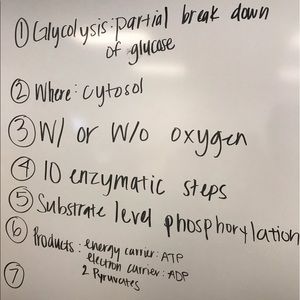 ① Glycolysis: partial break down
of glucose
② Where: cytosol
③ W/ or W/o oxygen
④ 10 enzymatic steps
⑤ Substrate level phosphorylation
⑥ Products: energy carrier: ATP
electron carrier: ADP
2 Pyruvates
⑦